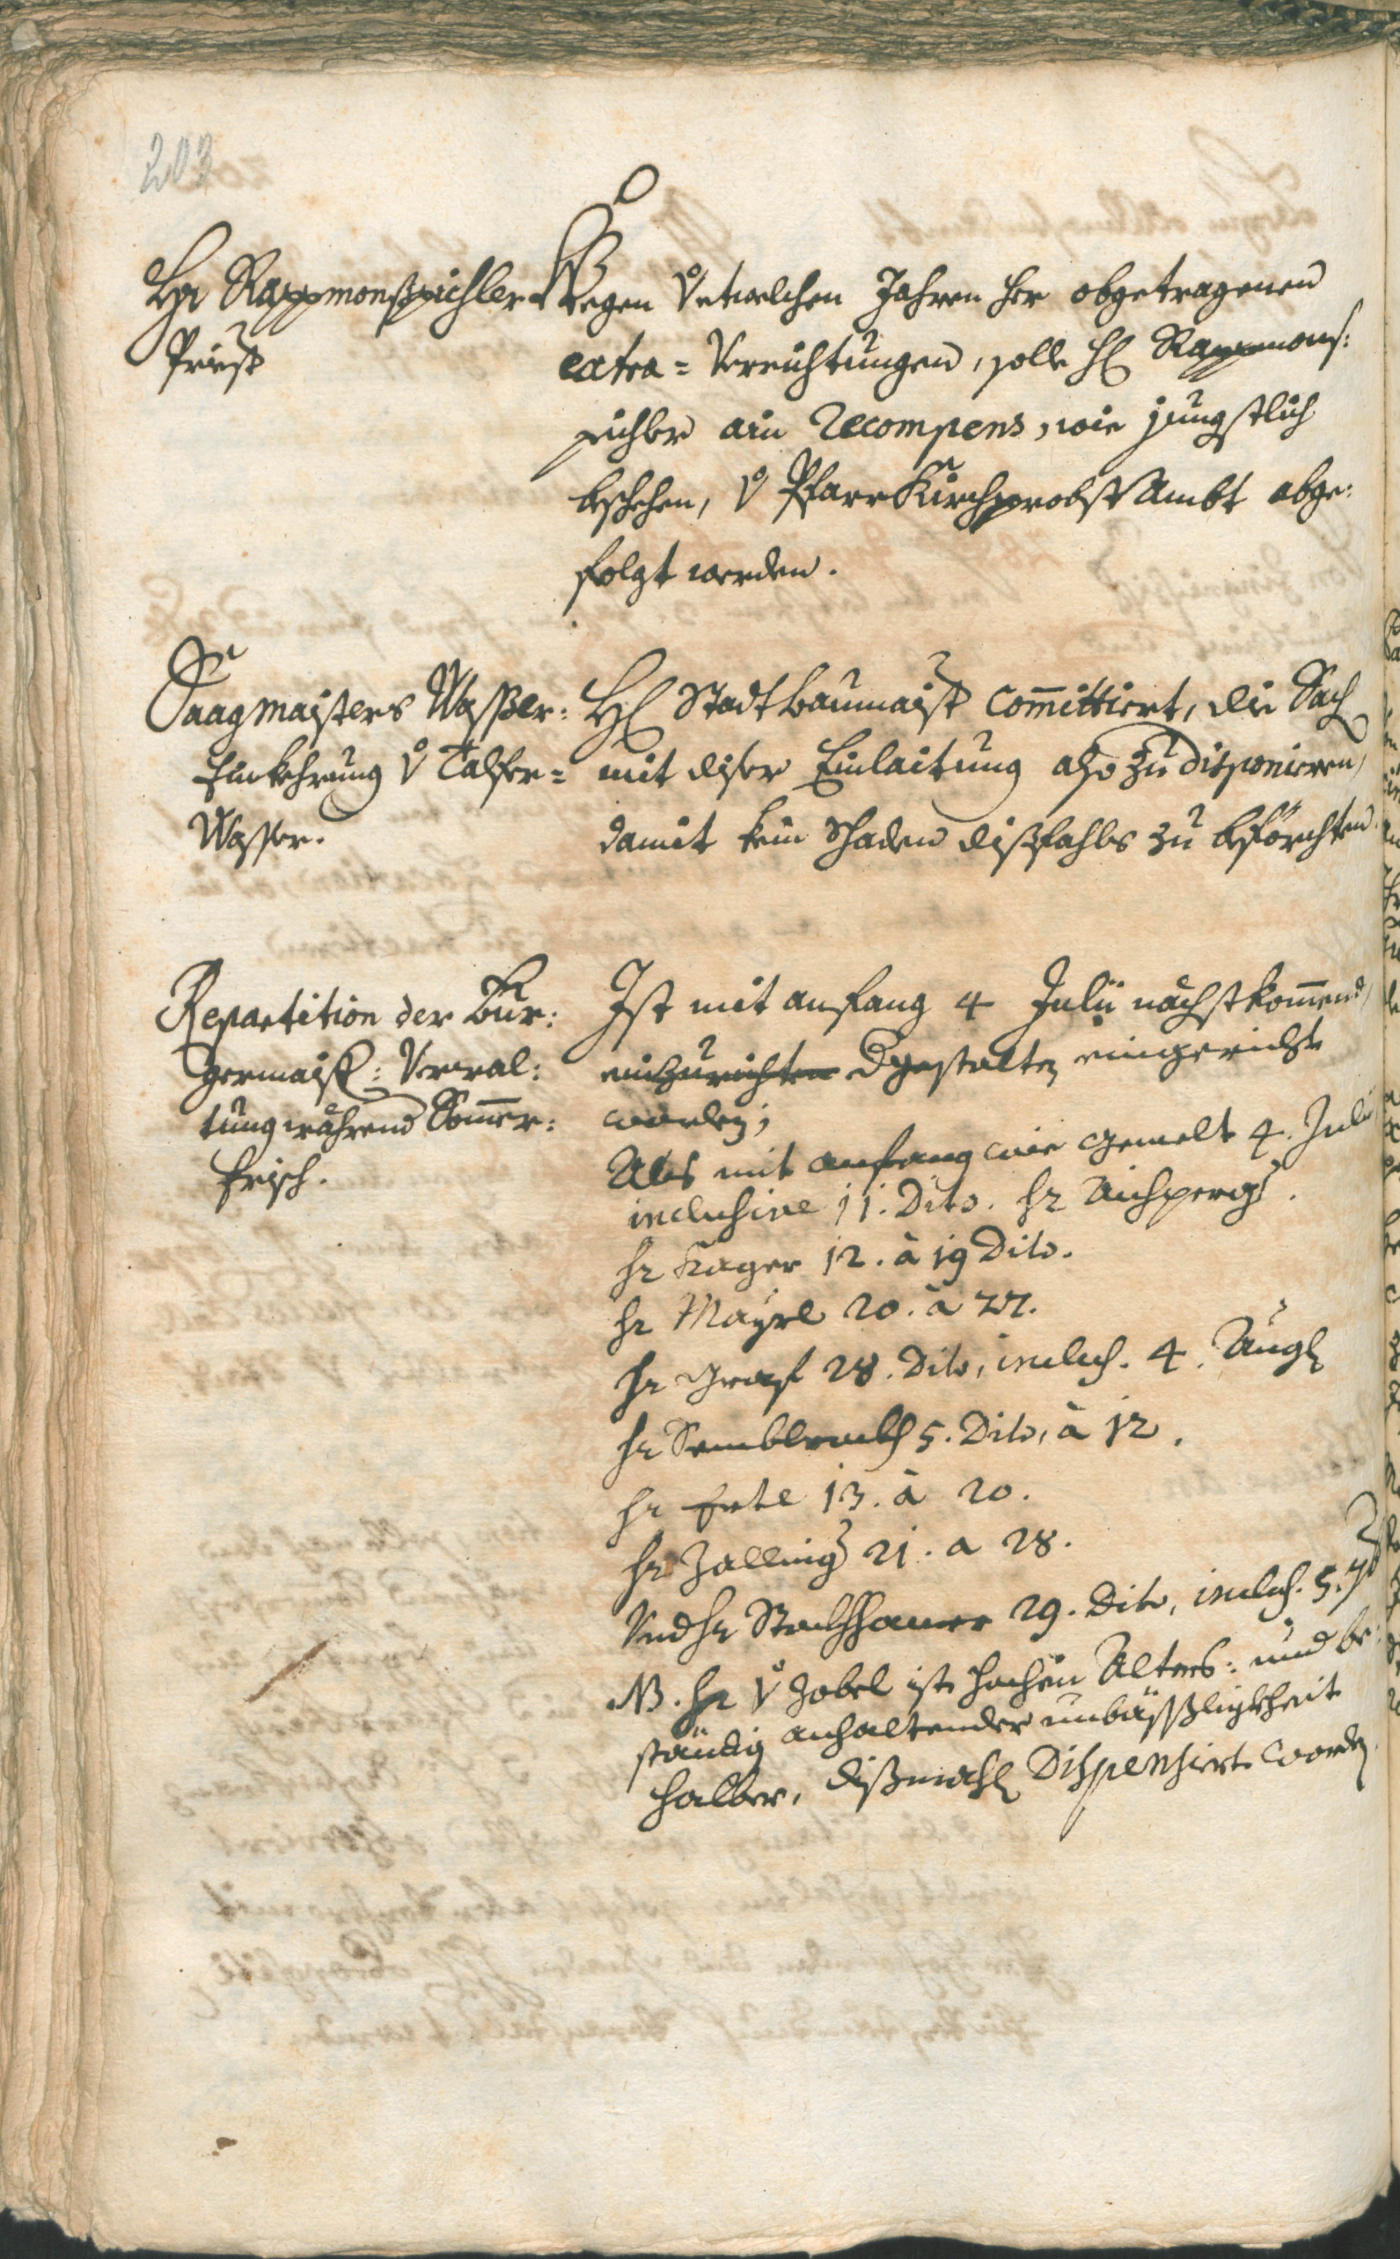 203
Hr Rappmonßpichler
Priest
Wegen v etwelchen Jahren her abgetragenen
extra=Verrichtungen, solle H Rappmons:
pichler ain Recompens, wie jüngstlich
beschehen, v PfarrKirchprobst Ambt abge:
folgt werden.
Saagmaisters Wasser:
Einkehrung v Talfer=
Wasser.
H StadtBaumaist committiert, die Sach
mit diser Einlaitung also zu disponieren,
damit kein Schaden dißfahls zu beförchten.
Repartition der Bur:
germaist: Verwal:
tung während Somer:
frisch.
Ist mit anfang 4 Julii nächstkomend,
einzurichten dgestalten eingericht
worden;
Als mit anfang wie gemelt 4. Juli
inclusive 11. Dito. hr Aichperg.
hr Kager 12. à 19 Dito.
hr Mayrl 20. à 27.
hr Graf 28. Dito, inclus. 4. Aug
hr Semblrockh 5. Dito, à 12.
hr Ertl 13. à 20.
hr Zalling 21. a 28.
Und hr Stockhamer 29. Dito, inclus. 5. 7
NB. hr v Zobel ist hochen Alters: und be:
ständig anhaltender unbäßligkheit
halber, dißmahl dispensiert worden